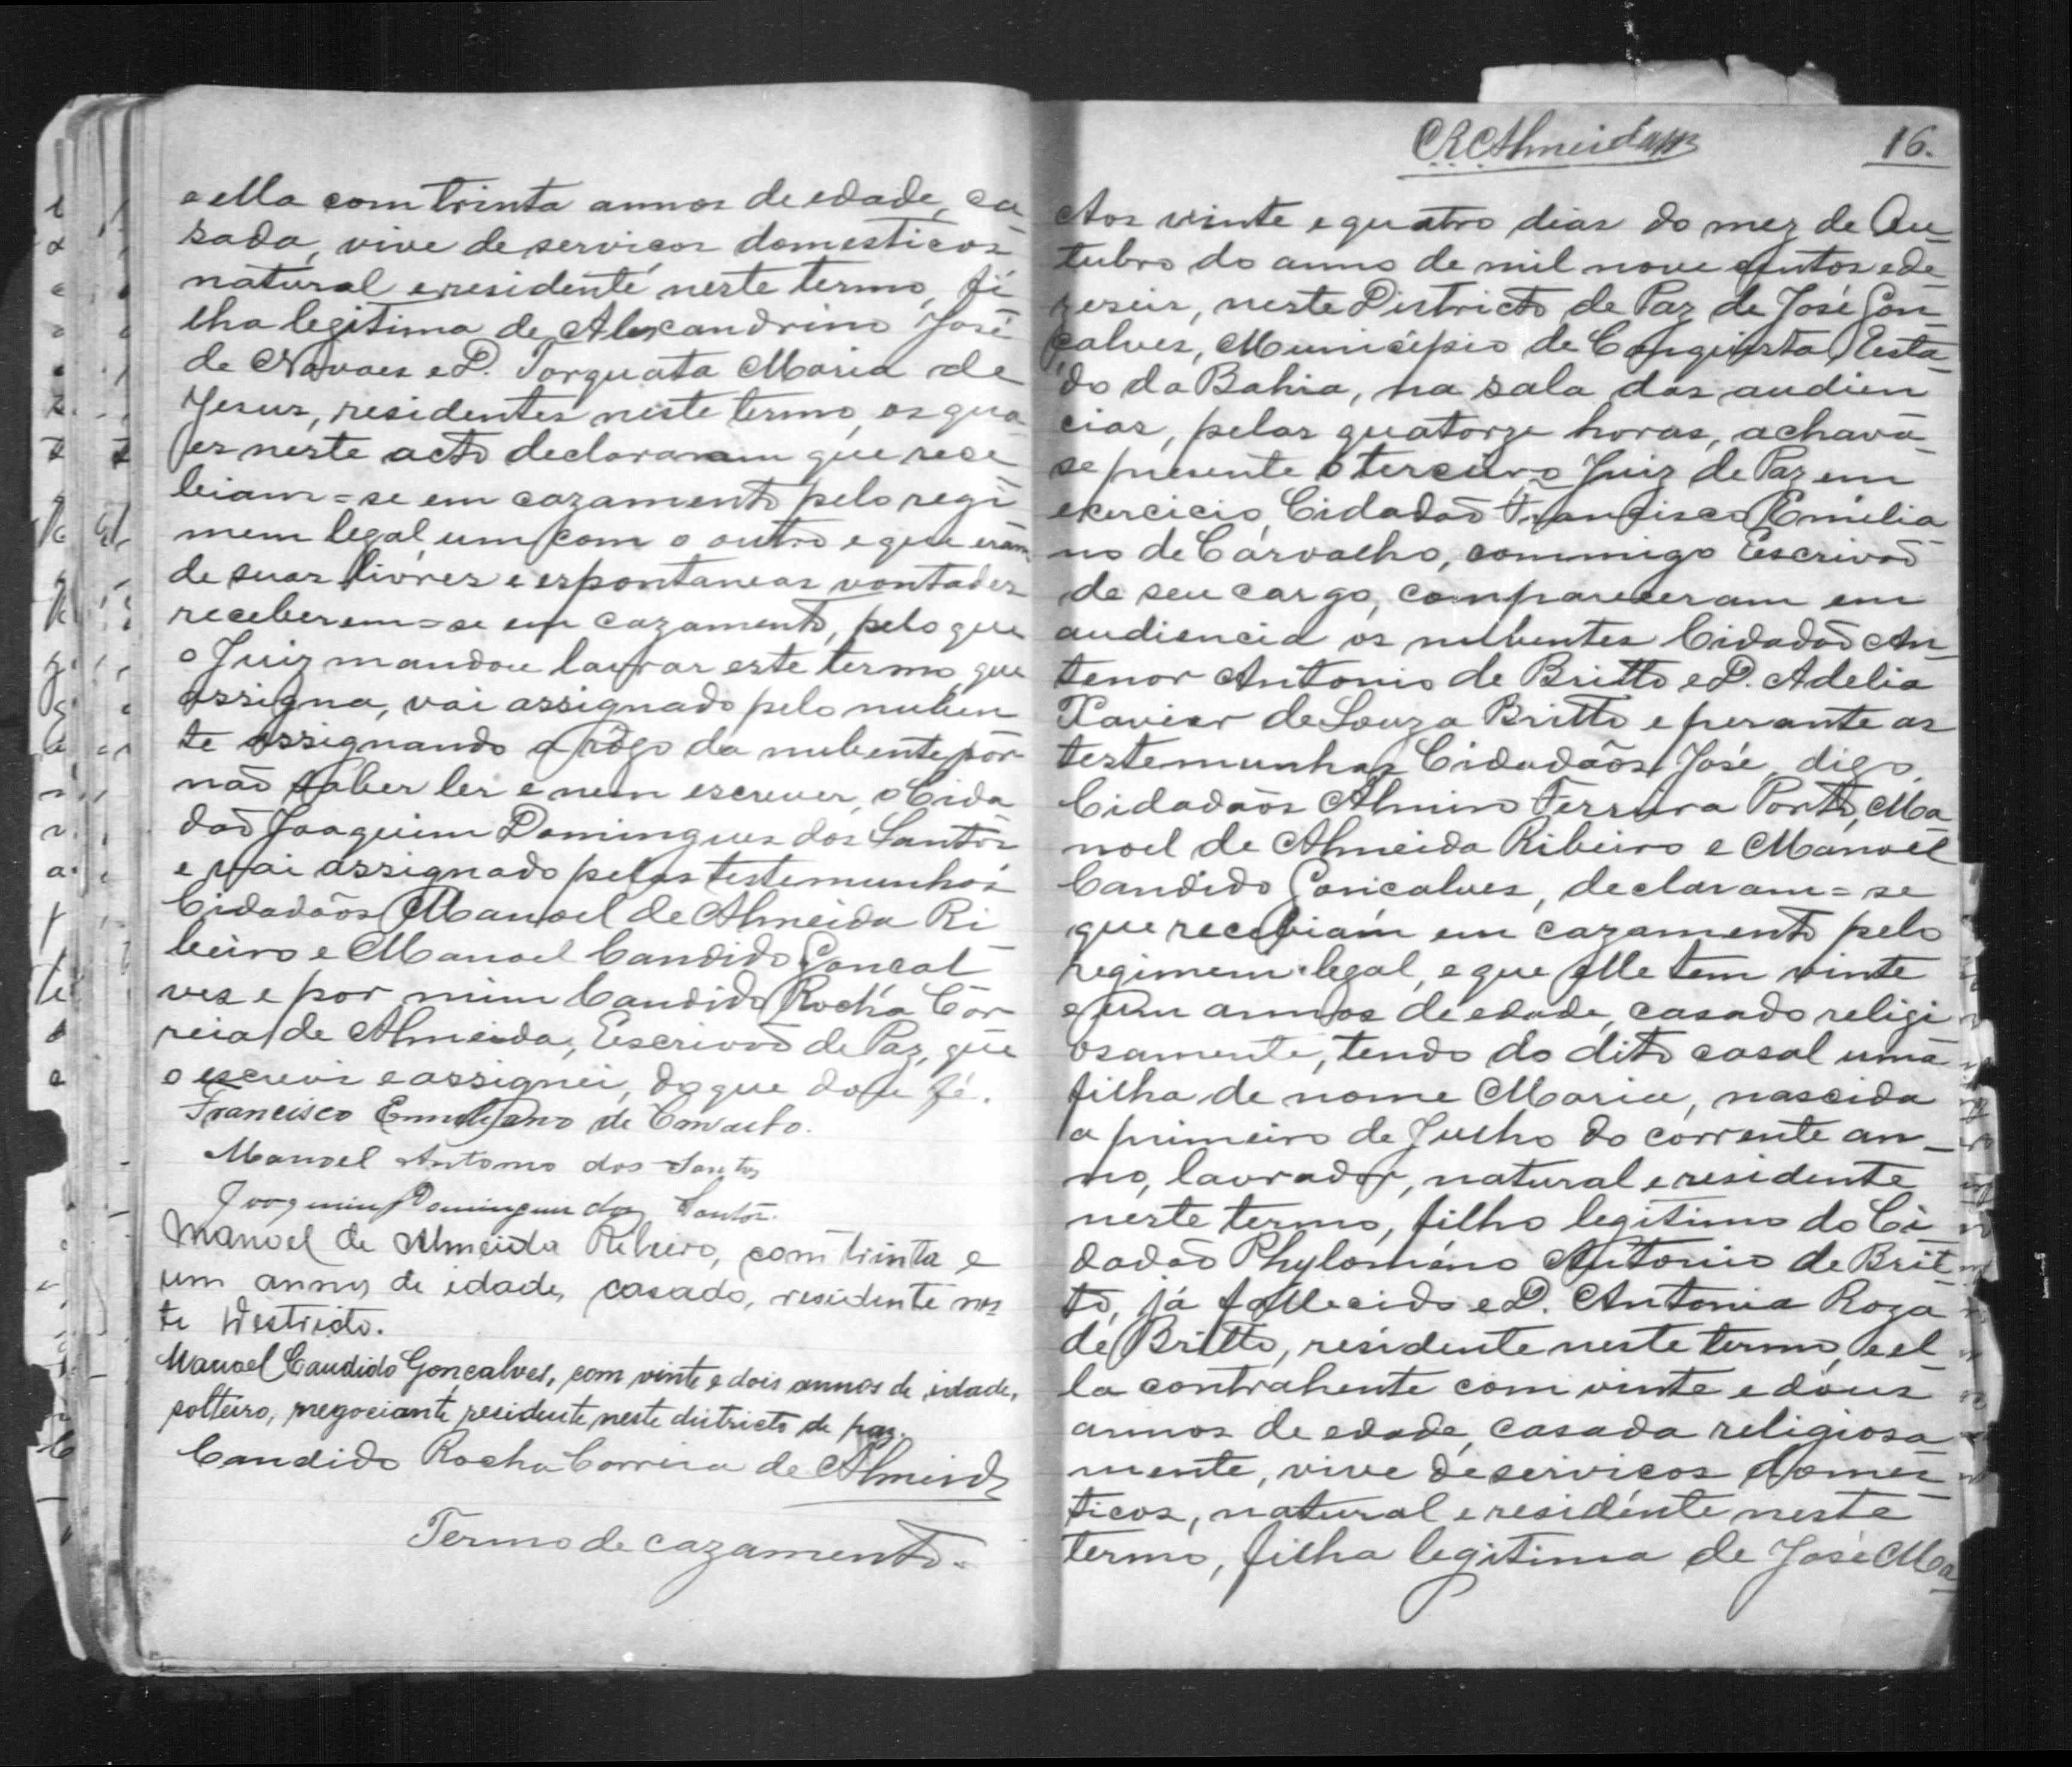 e ella com trinta annos de edade, ca-
sada, vive de serviços domesticos
natural e residente neste termo, fi-
lha legitima de Alexandrino José
de Novaes e D. Torquata Maria de
Jesus, residentes neste termo, os qua-
es neste acto declararam que rece-
biam=se em cazamento pelo regi-
mem legal um com o outro e que eram
de suas livres e espontaneas vontades
receberem=se em cazamento, pelo que
o Juiz mandou lavrar este termo que
assigna, vai assignado pelo nuben-
te assignando a rogo da nubente por
não saber ler e nem escrever, o Cida-
dão Joaquim Domingues dos Santos
e vai assignado pelas testemunhas
Cidadãos Manoel de Almeida Ri-
beiro e Manoel Candido Gonçal-
ves e por mim Candido Rocha Cor-
reia de Almeida, Escrivão de Paz, que
o escrevi e assignei, do que dou fé.
Francisco Emiliano de Carvalho.
Manoel Antonio dos Santos
Joaquim Domingues dos Santos.
Manoel de Almeida Ribeiro, com trinta e
um annos de idade, casado, residente nes-
te Destricto.
Manoel Candido Gonçalves, com vinte e dois annos de idade,
solteiro, negociante, residente neste districto de paz.
Candido Rocha Correia de Almeida
Termo de cazamento=
CRCAlmeida 16.
Aos vinte e quatro dias do mez de Ou-
tubro do anno de mil nove centos e de-
zeseis, neste Districto de Paz de José Gon-
çalves, Municipio de Conquista, Esta-
do da Bahia, na sala das audien-
cias, pelas quatorze horas, achava-
se presente o terceiro Juiz de Paz em
exercicio, Cidadão Francisco Emilia-
no de Carvalho, commigo Escrivão
de seu cargo, compareceram em
audiencia os nubentes Cidadão An-
tenor Antonio de Britto e D. Adelia
Xavier de Souza Britto e perante as
testemunhas Cidadãos José, digo
Cidadãos Almiro Ferreira Porto, Ma-
noel de Almeida Ribeiro e Manoel
Candido Goncalves, declaram=se
que recebiam em cazamento pelo
regimem legal, e que elle tem vinte
e um annos de edade, casado religi-
osamente, tendo do dito casal uma
filha de nome Maria, nascida
a primeiro de Julho do corrente an-
no, lavrador, natural e residente
neste termo, filho legitimo do Ci-
dadão Phylomeno Antonio de Brit-
to, já fallecido e D. Antonia Roza
de Britto, residente neste termo, e el-
la contrahente com vinte e dous
annos de edade, casada religiosa-
mente, vive de serviços domes-
ticos, natural e residente neste
termo, filha legitima de José Ma-